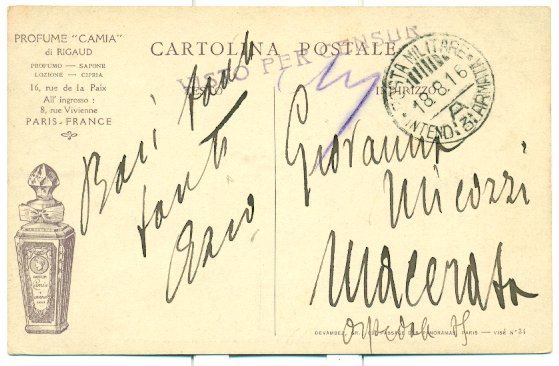 PROFUME "CAMIA"
di RIGAUD
PROFUMO — SAPONE
LOZIONE — CIPRIA
16, rue de la Paix
All' ingrosso :
8, rue Vivienne
PARIS-FRANCE
CARTOLINA POSTALE
VISTO PER CENSUR
INDIRIZZO
POSTA MILITARE
18.8.16
A
INTEND. 3ª ARMATA
Baci
tanti
Giovanni
Micozzi
Macerata
DEVAMBEZ, GR., PASSAGE DES PANORAMAS, PARIS — VISÉ N° 34